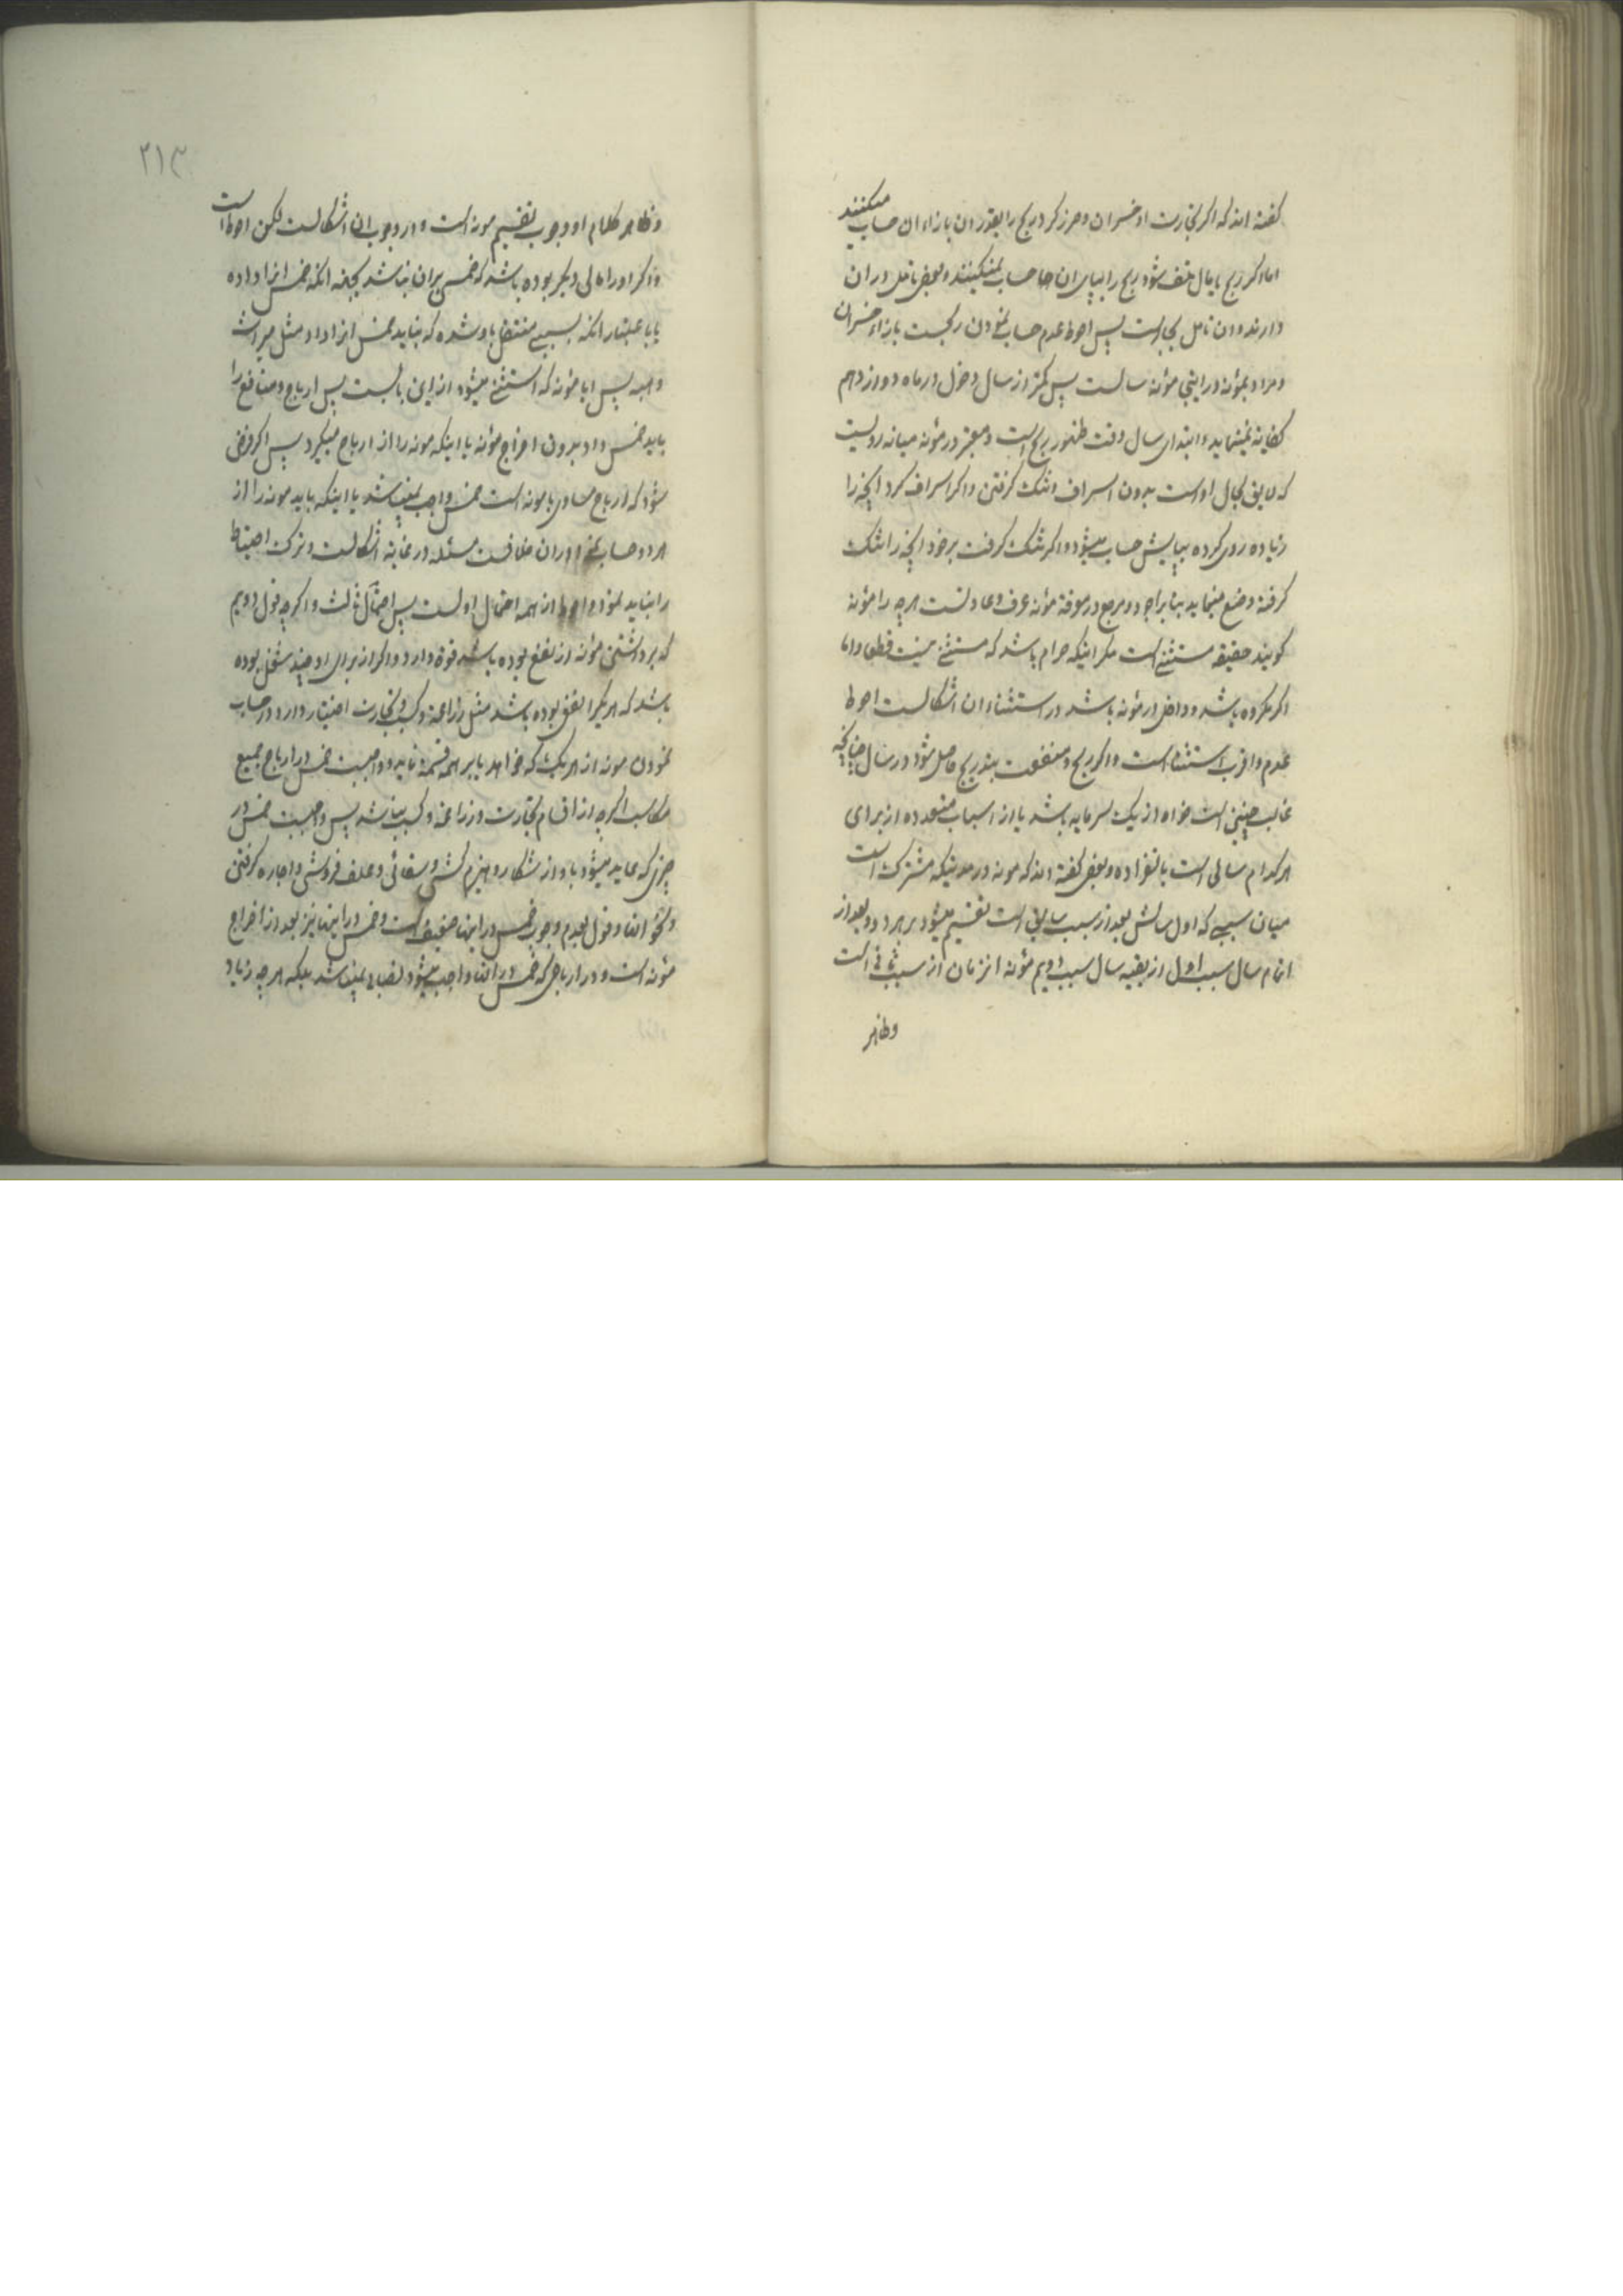 گفته اند که اگر تجارت او خسران و ضرر کرد ربح را بقدر ان بازاء ان حساب میکنند
اما اگر ربح یا مال تلف شود ربح را بپای ان جا حساب نمیکنند و بعضی تامل در ان
دارند و ان تامل بجاست پس احوط عدم حساب نمودن ربحست بازاء خسران
و مراد بمؤنه در اینجا مؤنه سالست پس کمتر از سال دخول در ماه دوازدهم
کفایه نمینماید و ابتدای سال وقت ظهور ربح است و معتبر در مؤنه میانه رویست
که لایق بحال اوست بدون اسراف و تنک گرفتن و اگر اسراف کرد انچه را
زیاده روی کرده بپایش حساب میشود و اگر تنک گرفت بر خود انچه را تنک
گرفته وضع مینماید بنابر اجود و مرجع در معرفة مؤنه عرف و عادتست هر چه را مؤنه
گویند حقیقه مستثنی است مگر اینکه حرام باشد که مستثنی نیست قطعا و اما
اگر مکروه باشد و داخل در مؤنه باشد در استثناء ان اشکالست احوط
عدم و اقرب استثناء است و اگر ربح و منفعت بتدریج حاصل شود در سال چنانچه
غالب چنین است خواه از یک سرمایه باشد یا از اسباب متعدده از برای
هر کدام سالی است بانفراده و بعضی گفته اند که مونه در مدتیکه مشترک است
میان سببی که اول سالش بعد از سبب سابق است تقسیم میشود بر هر دو و بعد از
اتمام سال سبب اول از بقیه سال سبب دویم مؤنه انزمان از سبب ثانی است
وظاهر
۲۱۳
وظاهر کلام او وجوب تقسیم مونه است و در وجوب ان اشکالست لکن احوط است
و اگر او را مالی دیگر بوده باشد که خمس بران نباشد بجهه انکه خمس انرا داده
یا باعتبار انکه بسببی منتقل باو شده که نباید خمس انرا داد مثل میراث
و هبه پس ایا مؤنه که استثنی میشود از این بابست پس ارباح و منافع را
باید خمس داد بدون اخراج مؤنه یا اینکه مونه را از ارباح میگیرد پس اگر فرض
شود که ارباح مساوی با مونه است خمس واجب نمیباشد یا اینکه باید مونه را از
هر دو حساب نمود و در ان خلافست مسئله در غایة اشکالست و ترک احتیاط
را نباید نمود و احوط از همه احتمال اولست پس احتمال ثالث و اگر چه قول دویم
که برداشتن مؤنه از نفع بوده باشد قوة دارد و اگر از برای او چند شغل بوده
باشد که هر یکرا نفعی بوده باشد مثل زراعة و کسب و تجارت اختیار دارد در حساب
نمودن مونه از هر یک که خواهد یا بر همه قسمة نماید و واجبست خمس در ارباح جمیع
مکاسب اگر چه از اقسام تجارت و زراعة و کسب نباشد پس واجبست خمس در
چیزی که عاید میشود باو از شکار و هیزم کشی و سقائی و علف فروشی و اجاره گرفتن
و نحو انها و قول بعدم وجوب خمس در اینها ضعیف است و خمس در اینها نیز بعد از اخراج
مؤنه است و در ارباحی که خمس در انها واجب میشود نصاب نمیباشد بلکه هر چه زیاد